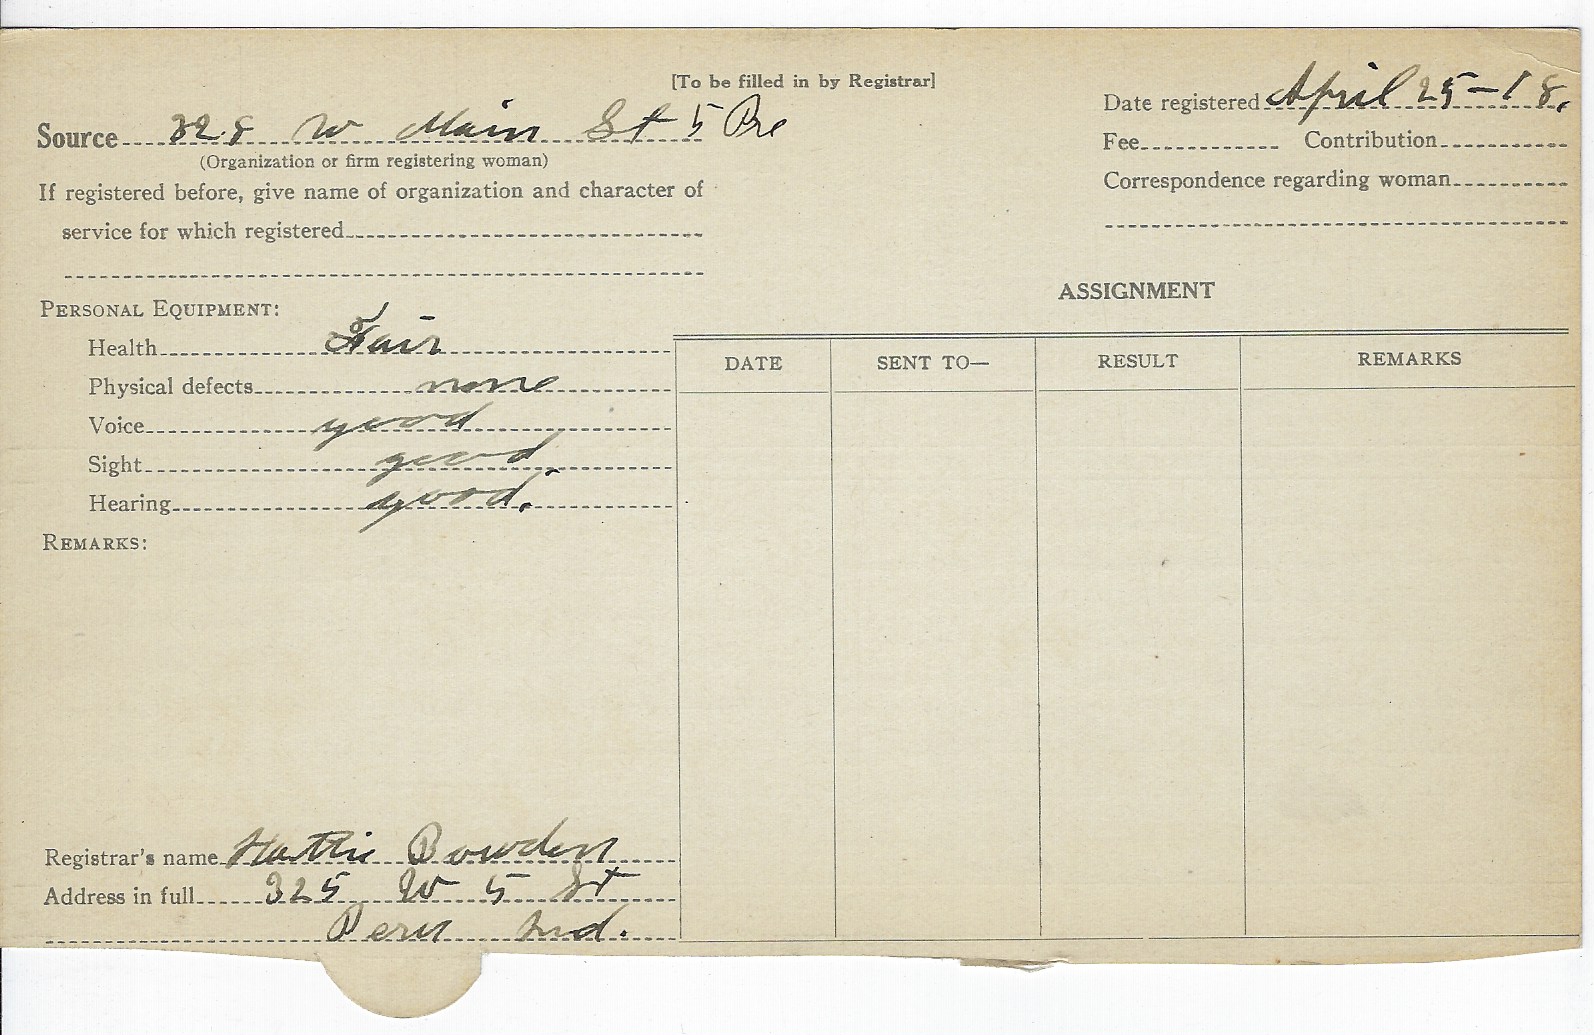 [To be filled in by Registrar]
Source 328 W Main St 5 Pre
(Organization or firm registering woman)
If registered before, give name of organization and character of
service for which registered
Date registered April 25-18.
Fee Contribution
Correspondence regarding woman
PERSONAL EQUIPMENT:
Health Fair
Physical defects none
Voice good
Sight good
Hearing good.
REMARKS:
ASSIGNMENT
DATE SENT TO— RESULT REMARKS
Registrar's name Hattie Bowden
Address in full 325 W 5 St
Peru Ind.